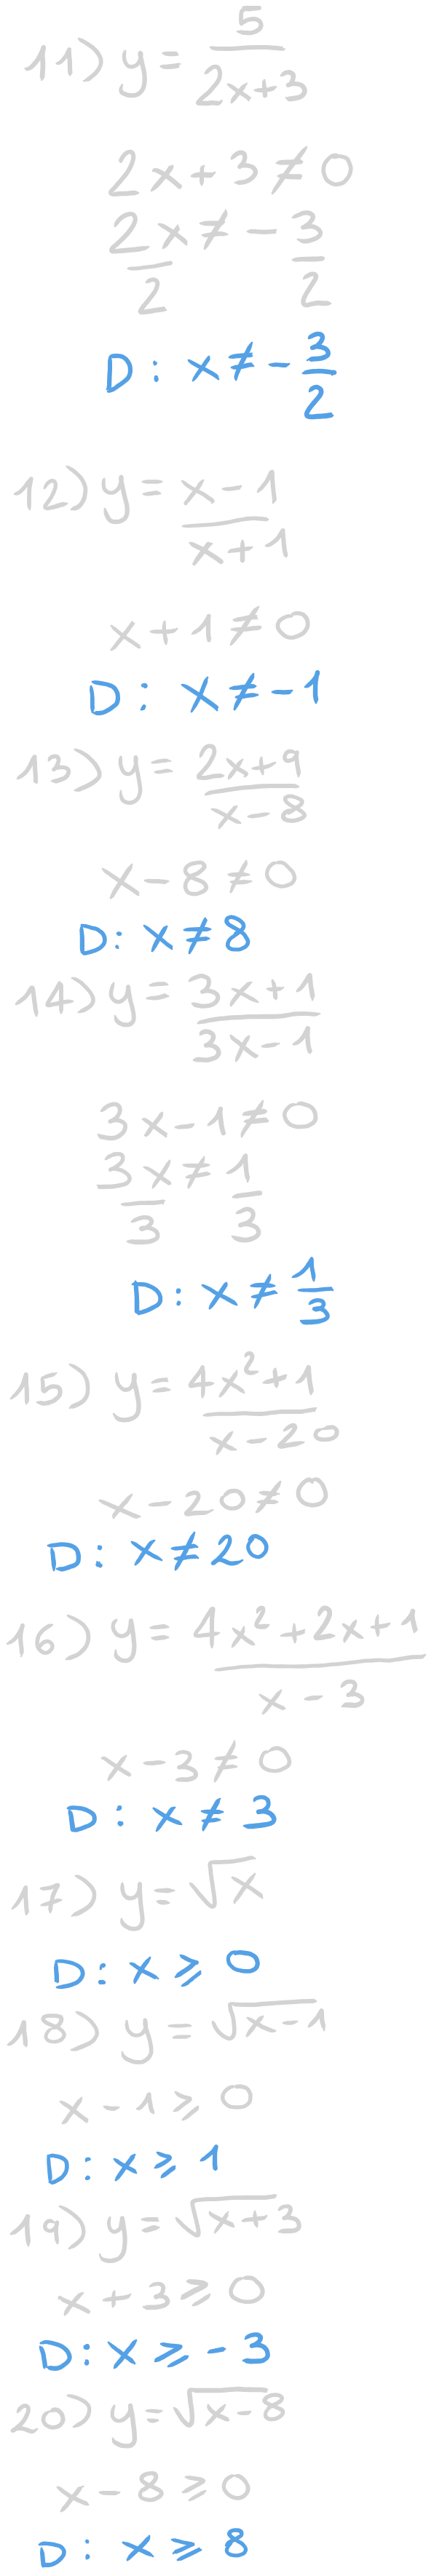 11) y = 5/(2x+3)
2x + 3 ≠ 0
2x/2 ≠ -3/2
D : x ≠ -3/2
12) y = (x-1)/(x+1)
x + 1 ≠ 0
D : x ≠ -1
13) y = (2x+9)/(x-8)
x - 8 ≠ 0
D : x ≠ 8
14) y = (3x+1)/(3x-1)
3x - 1 ≠ 0
3x/3 ≠ 1/3
D : x ≠ 1/3
15) y = (4x²+1)/(x-20)
x - 20 ≠ 0
D : x ≠ 20
16) y = (4x²+2x+1)/(x-3)
x - 3 ≠ 0
D : x ≠ 3
17) y = √x
D : x ⩾ 0
18) y = √(x-1)
x - 1 ⩾ 0
D : x ⩾ 1
19) y = √(x+3)
x + 3 ⩾ 0
D : x ⩾ -3
20) y = √(x-8)
x - 8 ⩾ 0
D : x ⩾ 8